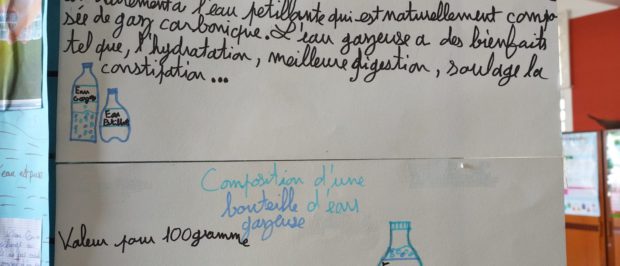 à l'eau petillante qui est naturellement compo-
sée de gaz carbonique. L'eau gazeuse a des bienfaits
tel que, l'hydratation, meilleure digestion, soulage la
constipation...
Eau
Gazeuse
Eau
Petillante
Composition d'une
bouteille d'eau
gazeuse
Valeur pour 100gramme